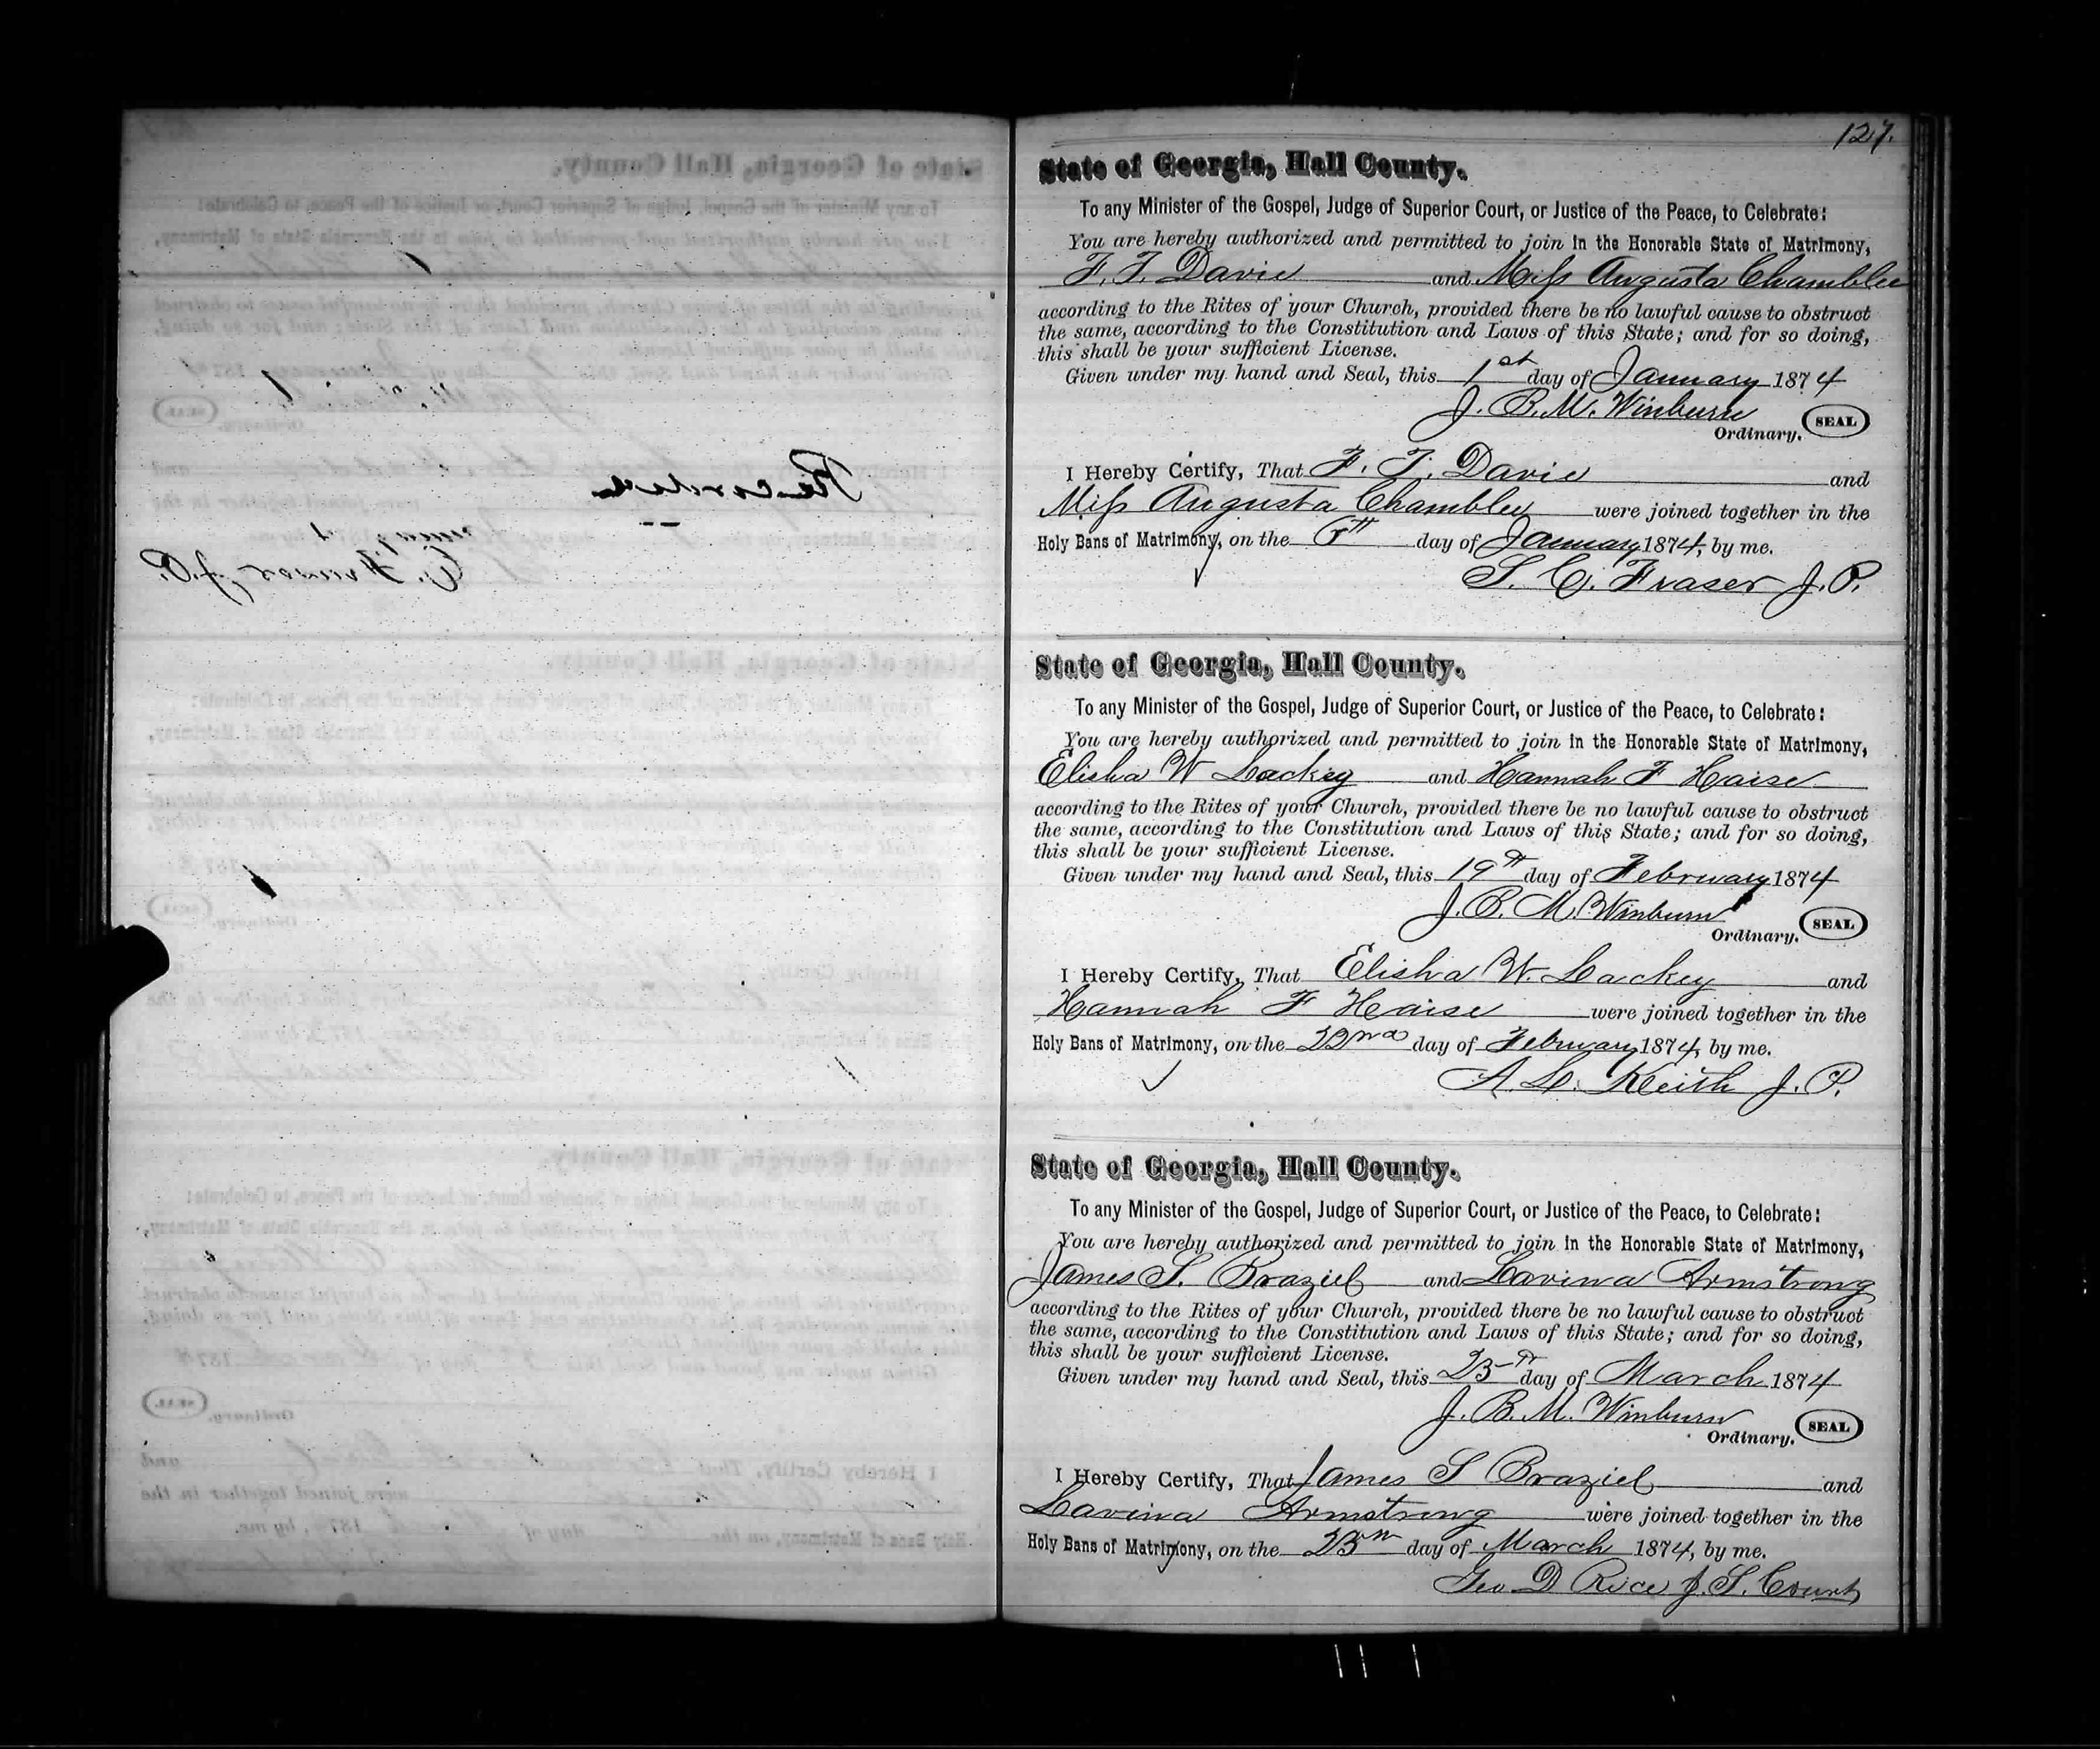 127.
State of Georgia, Hall County.
To any Minister of the Gospel, Judge of Superior Court, or Justice of the Peace, to Celebrate:
You are hereby authorized and permitted to join in the Honorable State of Matrimony,
F. T. Davie and Miss Augusta Chamblee
according to the Rites of your Church, provided there be no lawful cause to obstruct
the same, according to the Constitution and Laws of this State; and for so doing,
this shall be your sufficient License.
Given under my hand and Seal, this 1st day of January 1874
J. B. M. Winburn SEAL
Ordinary.
I Hereby Certify, That F. T. Davie and
Miss Augusta Chamblee were joined together in the
Holy Bans of Matrimony, on the day of January 1874, by me.
S. C. Fraser J. P.
State of Georgia, Hall County.
To any Minister of the Gospel, Judge of Superior Court, or Justice of the Peace, to Celebrate:
You are hereby authorized and permitted to join in the Honorable State of Matrimony,
Elisha W Lackey and Hannah F Haise
according to the Rites of your Church, provided there be no lawful cause to obstruct
the same, according to the Constitution and Laws of this State; and for so doing,
this shall be your sufficient License.
Given under my hand and Seal, this 19th day of February 1874
J. B. M. Winburn SEAL
Ordinary.
I Hereby Certify, That Elisha W. Lackey and
Hannah F Haise were joined together in the
Holy Bans of Matrimony, on the 22nd day of February 1874, by me.
A. L. Keith J. P.
State of Georgia, Hall County.
To any Minister of the Gospel, Judge of Superior Court, or Justice of the Peace, to Celebrate:
You are hereby authorized and permitted to join in the Honorable State of Matrimony,
James S. Braziel and Lavina Armstrong
according to the Rites of your Church, provided there be no lawful cause to obstruct
the same, according to the Constitution and Laws of this State; and for so doing,
this shall be your sufficient License.
Given under my hand and Seal, this 23th day of March 1874
J. B. M. Winburn SEAL
Ordinary.
I Hereby Certify, That James S Braziel and
Lavina Armstrong were joined together in the
Holy Bans of Matrimony, on the day of March 1874, by me.
Geo D Rice J. S. Court